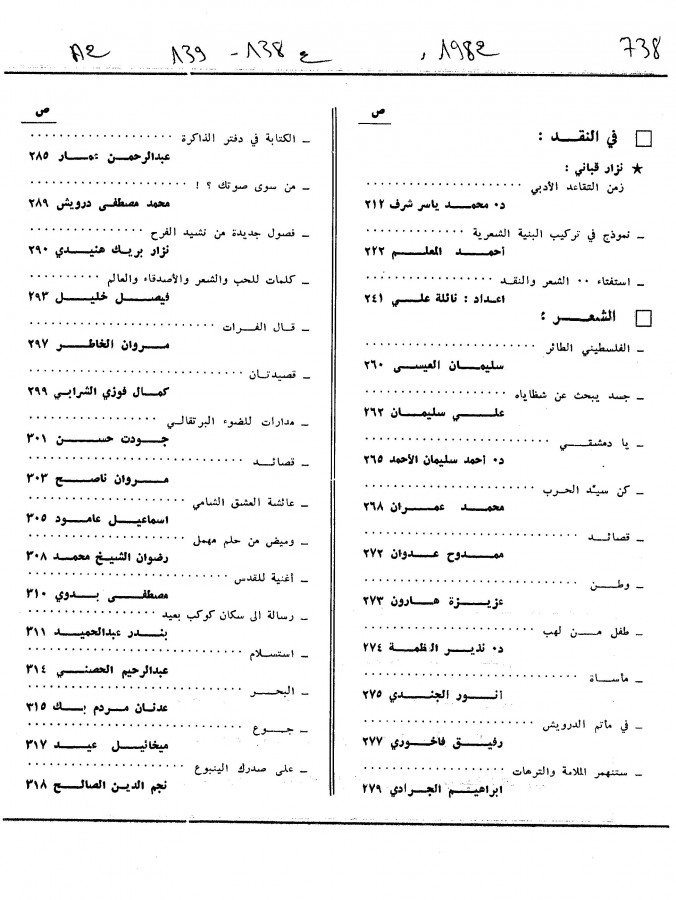 738 1982 ع 138 - 139 A2
ص
في النقـــد :
★ نزار قباني :
زمن التقاعد الأدبي
د٠ محمـــد ياسر شرف ٢١٢
ـ نموذج في تركيب البنية الشعرية
أحمـــد المعلـــم ٢٢٢
ـ استفتاء ٠٠ الشعر والنقـد
اعداد : نائلة علـــي ٢٤١
الشعـــر :
ـ الفلسطيني الطائر
سليمـان العيسى ٢٦٠
ـ جسد يبحث عن شظاياه
علـــي سليمـــان ٢٦٢
ـ يا دمشقـــي
د٠ أحمد سليمان الأحمد ٢٦٥
ـ كن سيـّد الحـرب
محمـــد عمـــران ٢٦٨
ـ قصائـــد
ممـــدوح عـدوان ٢٧٢
ـ وطـــن
عزيـــزة هـــارون ٢٧٣
ـ طفل مـــن لهب
د٠ نذيـــر العظمـــة ٢٧٤
ـ مأســـاة
أنـــور الجنـــدي ٢٧٥
ـ في مأتم الدرويش
رفيـــق فاخـــوري ٢٧٧
ـ ستنهمر الملامة والترهات
ابراهيـــم الجـرادي ٢٧٩
ص
ـ الكتابة في دفتر الذاكرة
عبدالرحمـــن عمـــار ٢٨٥
ـ من سوى صوتك ؟ !
محمد مصطفى درويش ٢٨٩
ـ فصول جديدة من نشيد الفرح
نزار بريـك هنيـدي ٢٩٠
ـ كلمات للحب والشعر والأصدقاء والعالم
فيصـــل خليـــل ٢٩٣
ـ قـال الفـــرات
مـــروان الخاطـــر ٢٩٧
ـ قصيدتـان
كمـــال فوزي الشرابي ٢٩٩
ـ مدارات للضوء البرتقالـي
جـــودت حســـن ٣٠١
ـ قصائـــد
مـــروان ناصـــح ٣٠٣
ـ عائشة العشق الشامي
اسماعيـــل عامـــود ٣٠٥
ـ وميض من حلم مهمل
رضوان الشيـخ محمـد ٣٠٨
ـ أغنية للقدس
مصطفـــى بـــدوي ٣١٠
ـ رسالة الى سكان كوكب بعيد
بنـــدر عبدالحميـــد ٣١١
ـ استســـلام
عبدالرحيم الحصنـــي ٣١٤
ـ البحـــر
عدنـان مـــردم بـــك ٣١٥
ـ جـــوع
ميخائيـــل عيـــد ٣١٧
ـ على صدرك الينبوع
نجم الديـن الصالـــح ٣١٨